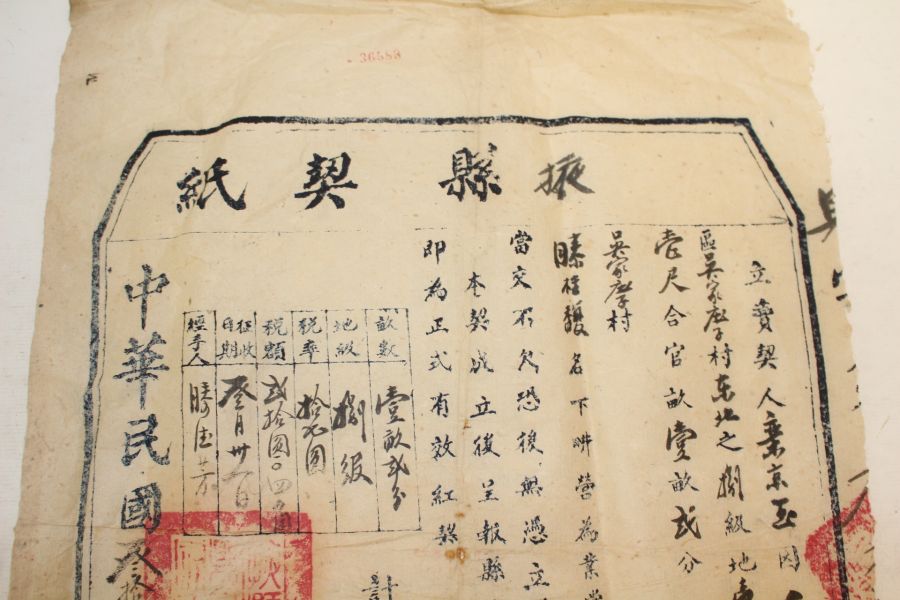 36583
掖縣契紙
立賣契人京玉因
區吳家庄子村东北之捌級地
壱尺合官畝壹畝貳分
吳家庄子村
滕桂馥名下畊營為業
當交不欠恐後無憑立
本契成立後呈報縣
即為正式有效紅契
計
畝數 壹畝貳分
地級 捌級
稅率 拾七圓
稅額 貳拾圓〇四角
征收日期 叁月廿日
經手人 滕
中華民國叁拾